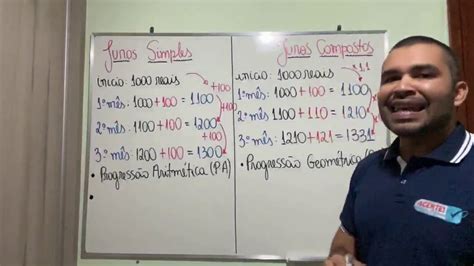 Juros Simples
início: 1000 reais
+100
1º mês: 1000+100 = 1100
+100
2º mês: 1100+100 = 1200
+100
3º mês: 1200+100 = 1300
• Progressão Aritmética (PA)
Juros Compostos
x1,1
início: 1000 reais
1º mês: 1000+100 = 1100
2º mês: 1100+110 = 1210
3º mês: 1210+121 = 1331
• Progressão Geométrica